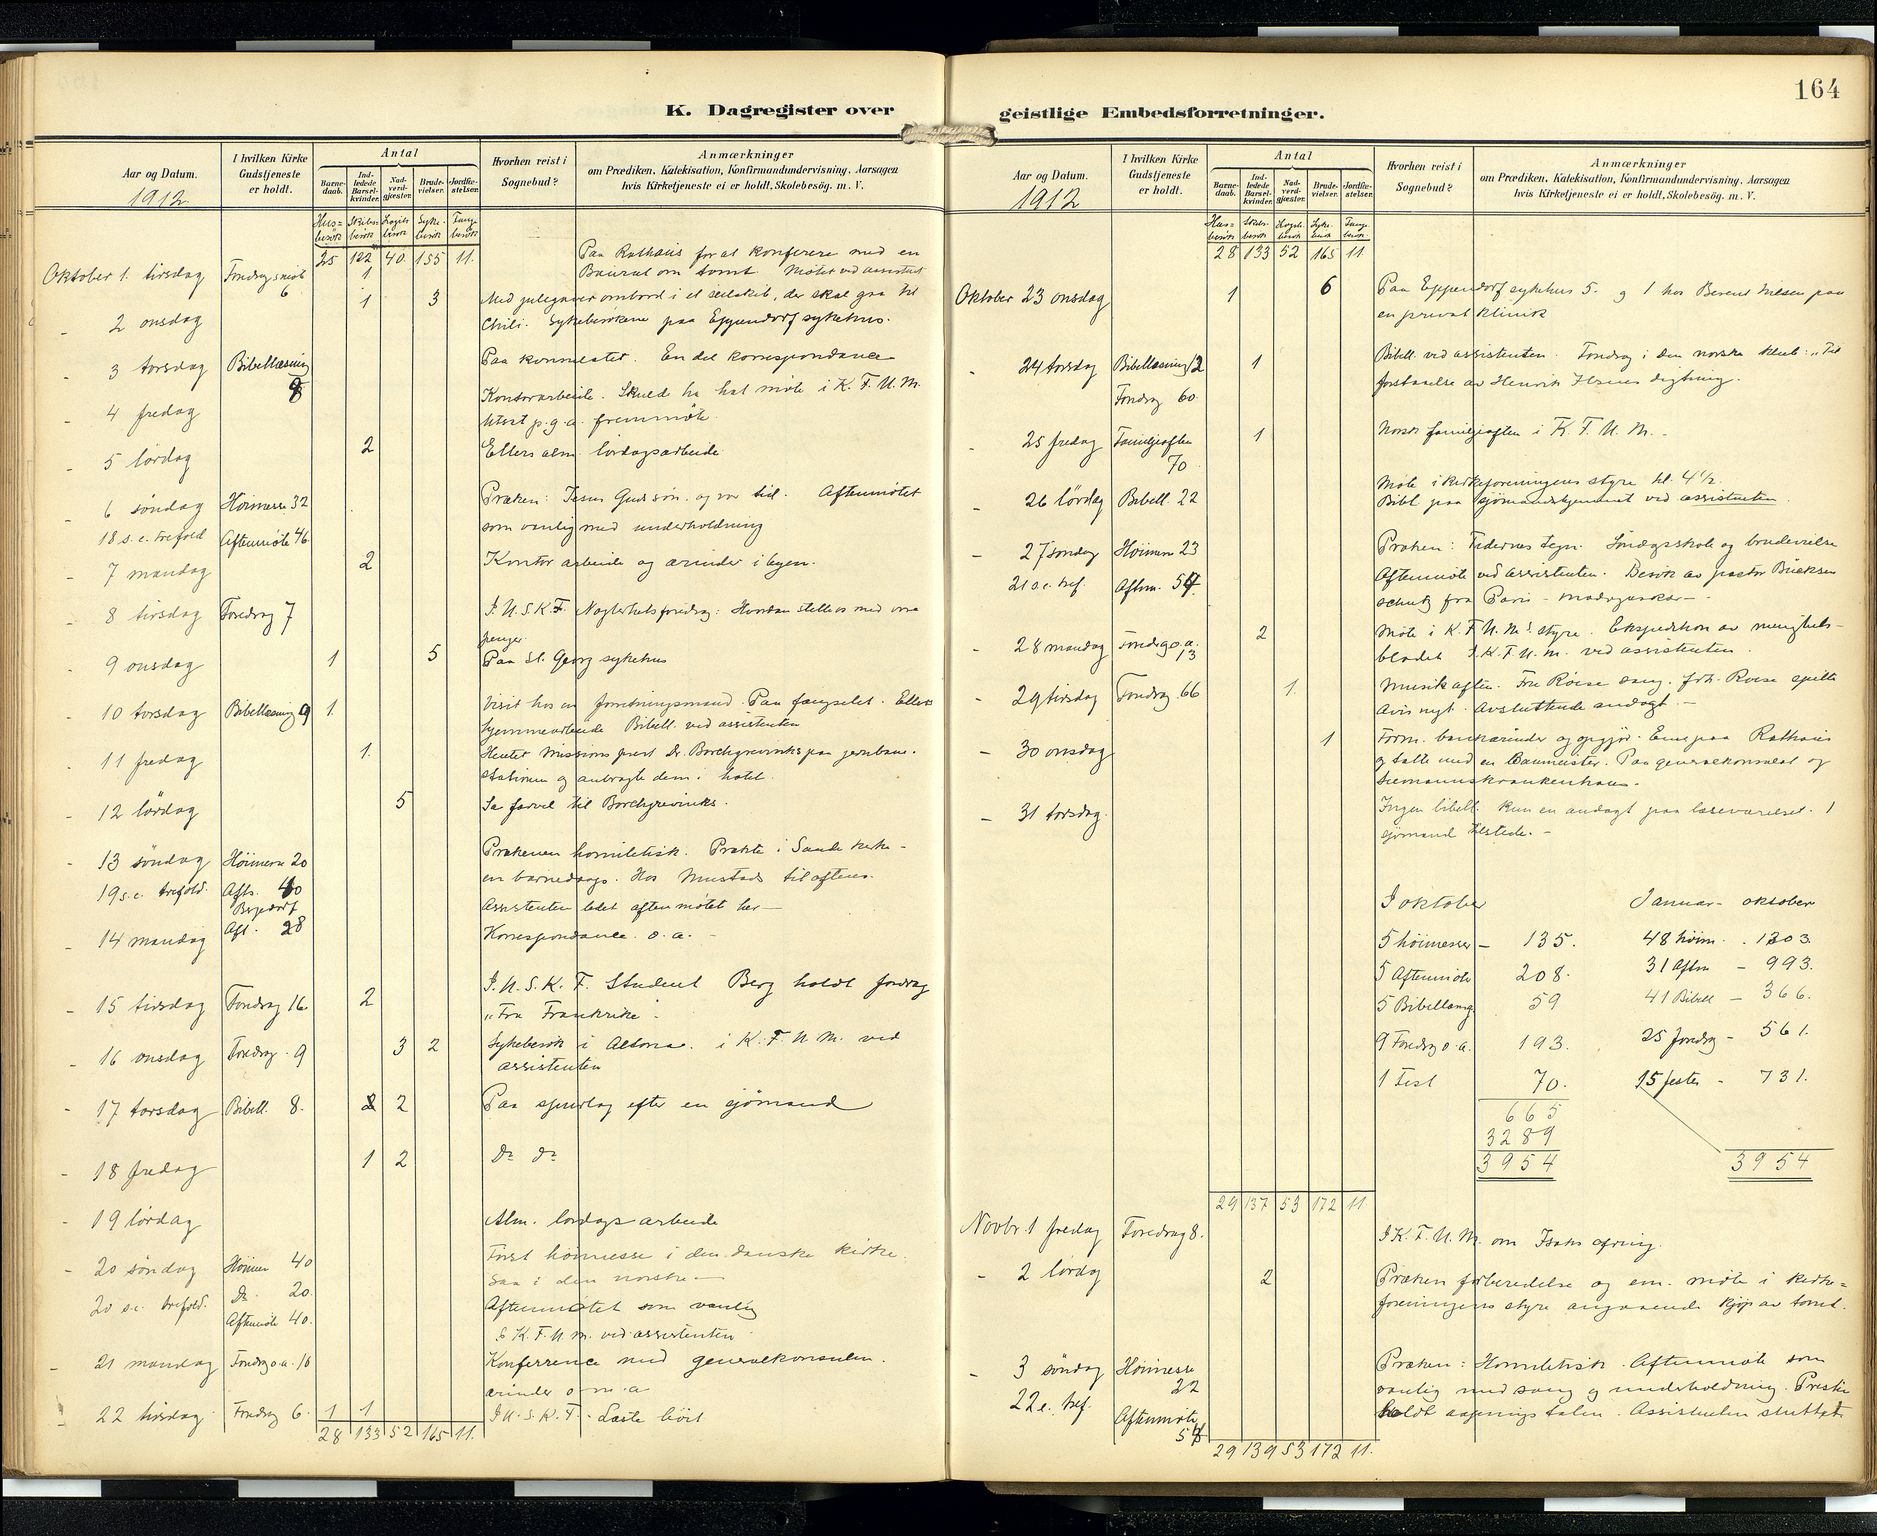 164
K. Dagregister over geistlige Embedsforretninger.
Aar og Datum.
1912.
I hvilken Kirke Gudstjeneste er holdt.
Antal
Barnedaab.
Indledede Barselkvinder.
Nadverdgjæster.
Brudevielser.
Jordfæstelser.
Hvorhen reist i Sognebud?
Anmærkninger
om Prædiken, Katekisation, Konfirmandundervisning, Aarsagen
hvis Kirketjeneste ei er holdt, Skolebesøg. m. V.
Husbesök Skibsbesök Logisbesök Sykebesök Fangebesök
25 122 40 155 11.
Paa Rathaus for at konferere med en
Oktober 1. tirsdag Foredragsmöt 6 1 Baurat om tomt. Møtet ved assistent
- 2 onsdag 1 3 Med julegaver ombord i et seilskib, der skal gaa til
Chili. Sykebesökene paa Eppendorf sykehus.
- 3 torsdag Bibellæsning 8 Paa konsulatet. En del korrespondance
- 4 fredag Kontorarbeide. Skulde ha hat møte i K.F.U.M.
p.g.a. fremmöte.
- 5 lördag 2 Ellers alm. lördagsarbeide
- 6 söndag Høimesse 32 Præken: Jesus Guds sön og vor tid. Aftenmötet
18 s.e. trefold Aftenmöte 46 som vanlig med underholdning
- 7 mandag 2 Kontor arbeide og ærinder i byen.
- 8 tirsdag Foredrag 7 I U.S.K.F. Nøgterhetsforedrag: Hvordan steller vi med vore
penger
- 9 onsdag 1 5 Paa St. Georg sykehus
- 10 torsdag Bibellæsning 9 1. Visit hos en forretningsmand. Paa fængselet. Ellers
hjemmearbeide Bibell. ved assistenten
- 11 fredag 1. Henter Missionsprest Dr. Borchgrevinks paa jernbane-
stationen og anbragte dem i hotel.
- 12 lørdag 5 Sa farvel til Borchgrevinks.
- 13 söndag Höimesse 20 Prækenen homiletisk. Prækte i Sande kirke -
19 s.e. trefold. Aft. 40 en barnedaab. Hos Mustads til aftens.
Assistenten ledet aftenmötet her -
- 14 mandag Aft. 28 Korrespondance. o.a. -
- 15 tirsdag Foredrag 16. 2 I U.S.K.F. Student Berg holdt foredrag
"Fra Frankrike".
- 16 onsdag Foredrag. 9 3 2 Sykebesök i Altona. i K.F.U.M. ved
assistenten
- 17 torsdag Bibell. 8. 2 2 Paa efter en sjömand
- 18 fredag 1 2 Do Do
- 19 lördag Alm. lördagsarbeide
- 20 söndag Höimes 40 Först höimesse i den danske kirke.
20 s.e. trefold. Do. 20. Saa i den norske -
Aftenmöte 40. Aftenmötet som vanlig
I K.F.U.M. ved assistenten
- 21 mandag Foredrag o.a. 16 Konferrence med generalkonsulen.
ærinder o.m.a
- 22 tirsdag Foredrag 6. 1 1 I U.S.K.F. Læste höit
28 133 52 165 11.
Aar og Datum.
1912
I hvilken Kirke Gudstjeneste er holdt.
Antal
Barnedaab.
Indledede Barselkvinder.
Nadverdgjæster.
Brudevielser.
Jordfæstelser.
Hvorhen reist i Sognebud?
Anmærkninger
om Prædiken, Katekisation, Konfirmandundervisning, Aarsagen
hvis Kirketjeneste ei er holdt, Skolebesøg. m. V.
Husbesök Skibsbesök Logisbesök Sykebesök Fangebesök
28 133 52 165 11
Oktober 23 onsdag 1 6 Paa Eppendorf sykehus 5. og 1 hos Berent Nilsen paa
en privat klinik
- 24 torsdag Bibellæsning 12 1 Bibell. ved assistenten. Foredrag i den norske klub: "Til
Foredrag 60. forstaaelse av Henrik Ibsens digtning.
- 25 fredag Familjeaften 70 1 Norsk familjeaften i K.F.U.M. -
- 26 lördag Bibell. 22 Møte i kirkeforeningens styre kl. 4 1/2.
Bibl paa sjømandshjemmet ved assistenten.
- 27 söndag Höimesse 23 Præken: Tidernes tegn. Söndagsskole og brudevielse
21 s.e. tref. Aftm. 54 Aftenmöte ved assistenten. Besök av pastor
fra Paris - madagaskar -
- 28 mandag Foredrag o.a. 13 2 Møte i K.F.U.M.s styre. Ekspedition av menighets-
bladet I.K.F.U.M. ved assistenten.
- 29 tirsdag Foredrag 66 1. Musikaften. Fru Röise sang. frk. Roise spilte
Avisnyt. Avsluttende andagt. -
- 30 onsdag 1 Form. bankærinder og opgjör. Em. paa Rathaus
og talte med en Baumeister. Paa generalkonsulat og
Seemannskrankenhaus.
- 31 torsdag. Ingen bibell. kun en andagt paa læseværelset. 1
sjömand tilstede. -
I oktober Januar - oktober
5 höimesser - 135. 48 höim. . 1303.
5 Aftenmöte 208. 31 Aftm - 993.
5 Bibellæsng 59 41 Bibell - 366.
9 Foredrag o.a. 193. 25 foredrag - 561.
1 Fest 70. 15 fester - 731.
665
3289
3954 3954
29 137 53 172 11
Novbr. 1 fredag Foredrag 8. I K.F.U.M. om Isaks ofring.
- 2 lördag 2 Præken forberedelse og em. møte i kirke-
foreningens styre angaaende kjöp av tomt.
- 3 söndag Höimesse 22 Præken: Homiletisk. Aftenmöte som
22 e. tref. vanlig med sang og underholdning. Presten
Aftenmöte 54 holdt aapningstalen. Assistenten sluttet
29 139 53 172 11.